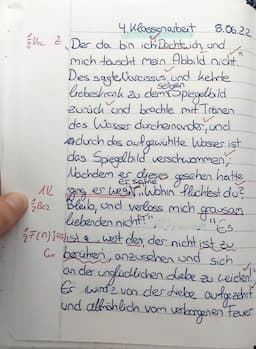 4. Klassenarbeit 8.06.22
½ Voc 2 "Der da bin ich. Dachte ich und
mich täuscht mein Abbild nicht."
Dies sagte Narcissus und kehrte
liebeskrank zu dem selben Spiegelbild
zurück und brachte mit Tränen
das Wasser durcheinander, und
durch das aufgewühlte Wasser ist
das Spiegelbild verschwommen,
Nachdem er dieses gesehen hatte,
Wohin flüchtest du?
Bleib, und verlass mich grausam
liebenden nicht!" "Es
ist, weit den, der nicht ist zu
berühren, anzusehen und sich
an der unglücklichen Liebe zu leiden.
Er wird von der Liebe aufgezehrt
und allmählich vom verborgenen Feuer